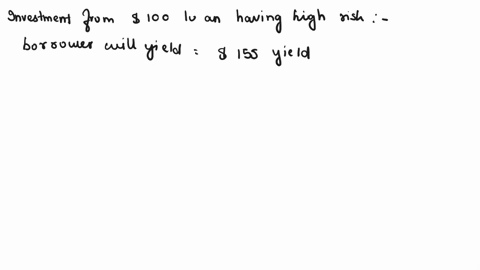 Investment from $ 100 lu an having high risk :-
borrower will yield = $ 155 yield